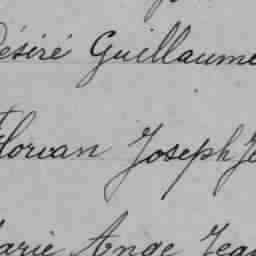 Désiré Guillaume
Florian Joseph Jo
Marie Ange Jean